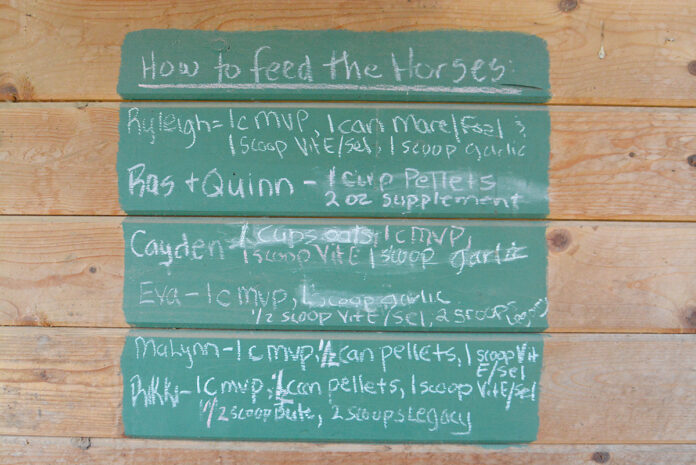 How to feed the Horses:
Ryleigh = 1c mvp, 1 can Mare/Foal ;
1 scoop VitE/sel, 1 scoop garlic
Bas + Quinn - 1 cup Pellets
2 oz supplement
Cayden - 1 cups oats, 1 c mvp,
1 scoop VitE 1 scoop garlic
Eva - 1 c mvp, 1 scoop garlic
1/2 scoop VitE/sel, 2 scoops
MaLynn - 1 c mvp, 1/2 can pellets, 1 scoop Vit
E/sel
Rikki - 1 c mvp, 1/2 can pellets, 1 scoop VitE/sel
1/2 scoop Bute, 2 scoops Legacy